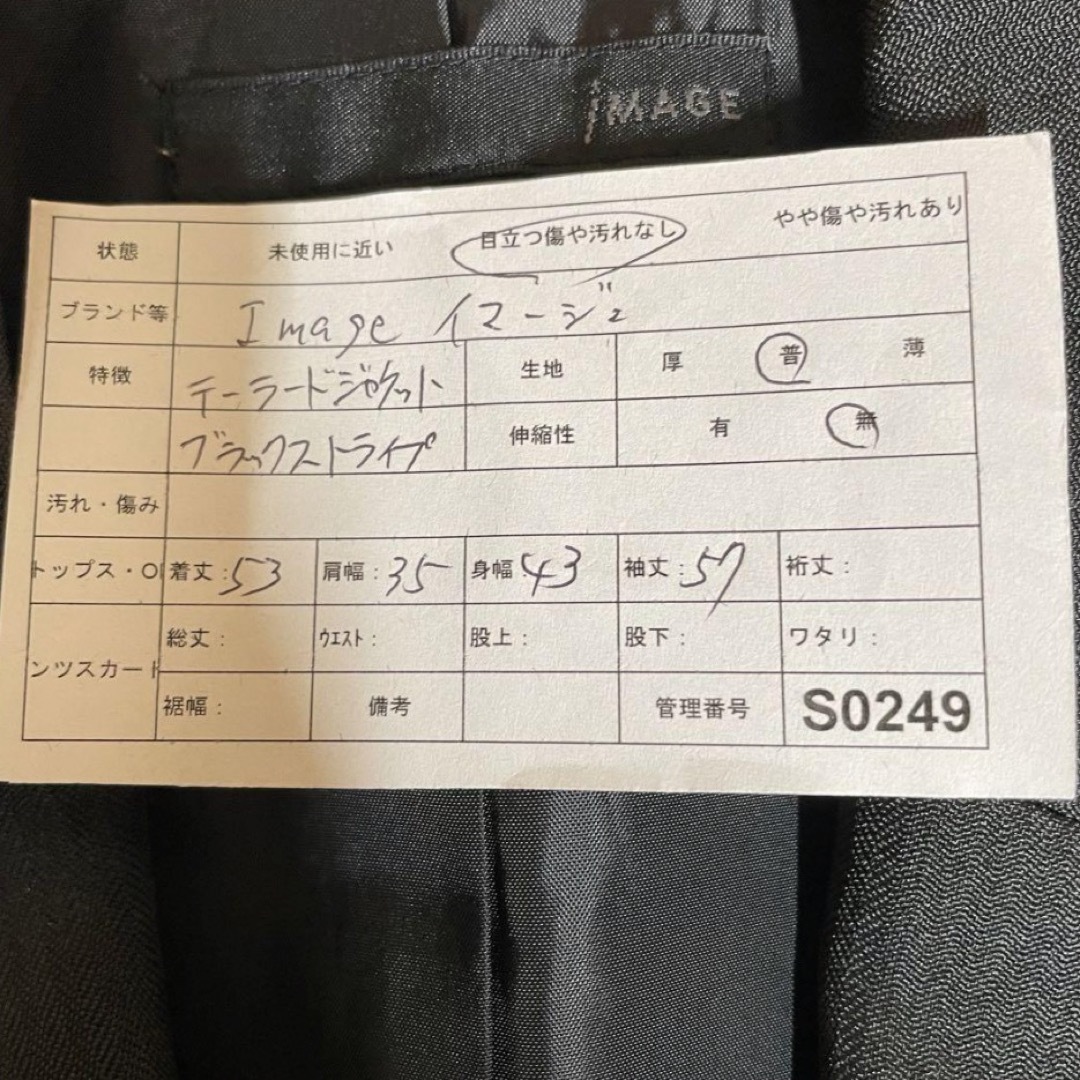 iMAGE
状態 未使用に近い 目立つ傷や汚れなし やや傷や汚れあり
ブランド等 Image イマージュ
特徴 テーラードジャケット 生地 厚 普 薄
ブラックストライプ 伸縮性 有 無
汚れ・傷み
トップス・O 着丈:53 肩幅:35 身幅:43 袖丈:57 裄丈:
ンツスカート 総丈: ウエスト: 股上: 股下: ワタリ:
裾幅: 備考 管理番号 S0249